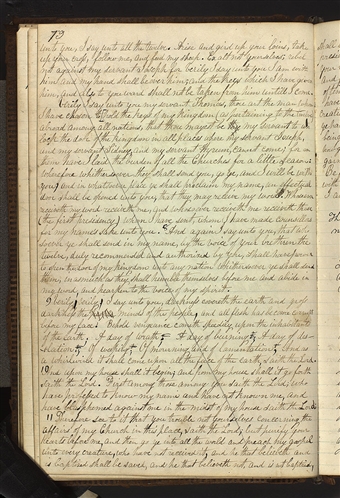 73
unto you, I say unto all the twelve. Arise and gird up your loins, take
up your cross, follow me, and feed my sheep. Exalt not yourselves; rebel
not against my servant Joseph for Verily I say unto you I am with
him and my hand shall be over him; and the keys which I have given
him, and also to you ward shall not be taken from him untill I come.
Verily I say unto you my servant Thomas, thou art the man whom
I have chosen to hold the keys of my kingdom (as pertaining to the twelve)
abroad among all nations, that thou mayest be my servant to un-
lock the door of the kingdom in all places where my servant Joseph,
and my servant Sidney, and my servant Hyrum, cannot come; for on
them have I laid the burden of all the Churches for a little season:
wherefore whithersoever they shall send you, go ye, and I will be with
you; and in whatsoever place ye shall proclaim my name, an effectual
door shall be opened unto you, that they may receive my word: Whosoever
receiveth my word receiveth me, and whosoever receiveth me receiveth those
(the first presidency) whom I have sent, whom I have made counsellors
for my names sake unto you. And again I say unto you, that who-
soever ye shall send in my name, by the voice of your brethren the
twelve, duly recommended and authorized by you, shall have power
to open the door of my kingdom unto any nation whithersoever ye shall send
them, in asmuch as they shall humble themselves before me and abide in
my word, and hearken to the voice of my spirit.
9 Verily, Verily, I say unto you, darkness covereth the earth and gross
darkness the minds of the people, and all flesh has become corrupt
before my face! Behold vengeance cometh speedily upon the inhabitants
of the Earth. A day of wrath! A day of burning! A day of de-
solation! Of weeping! Of mourning and of lamentation! And as
a whirlwind it shall come upon all the face of the Earth, saith the Lord.
10 And upon my house shall it begin; and from my house shall it go forth
saith the Lord. First among those among you; saith the Lord; who
have professed to know my name and have not known me, and
have blasphemed against me in the midst of my house, saith the Lord.
11 Therefore see to it that you trouble not yourselves concerning the
affairs of my Church in this place, saith the Lord; but purify your
hearts before me, and then go ye into all the world and preach my gospel
unto every creature who have not received it; and he that believeth and
is baptized shall be saved, and he that believeth not, and is not baptized